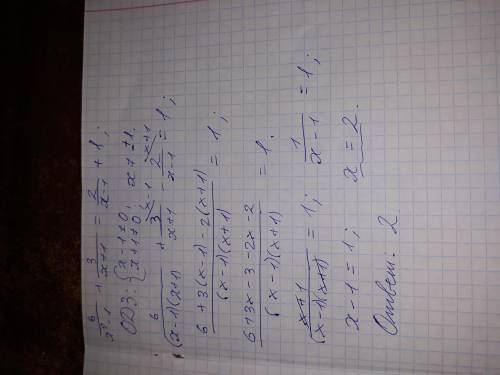 6/(x²-1) + 3/(x+1) = 2/(x-1) + 1;
ОДЗ: { x-1≠0, x+1≠0; x ≠ ±1.
6/((x-1)(x+1)) + 3/(x+1) (x-1 - 2/(x-1) (x+1 = 1;
(6+3(x-1)-2(x+1))/((x-1)(x+1)) = 1;
(6+3x-3-2x-2)/((x-1)(x+1)) = 1.
(x+1)/((x-1)(x+1)) = 1; 1/(x-1) = 1;
x-1=1; x = 2.
Ответ: 2